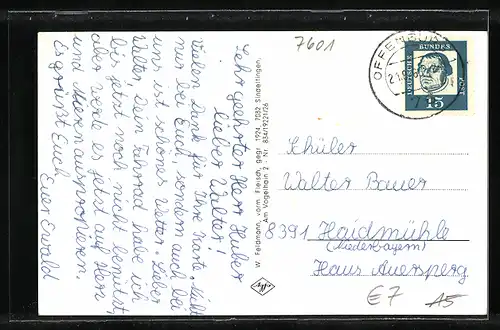 7601
OFFENBURG
DEUTSCHE BUNDESPOST
15
Sehr geehrter Herr Huber
lieber Walter!
Vielen Dank für Ihre Karte. Nicht
nur bei Euch, sondern auch bei
uns ist schönes Wetter. Lieber
Walter, Dein Fahrrad habe ich
bis jetzt noch nicht benützt,
aber werde es jetzt auf Herz
und Nieren ausprobieren.
Es grüßt Euch
Euer Ewald
W. Feldmann, vorm. Fleisch, gegr. 1924, 7032 Sindelfingen,
Am Vögelrain 2 - Nr.
Agfa
Schüler
Walter Bauer
8391 Haidmühle
(Niederbayern)
Haus Auersperg
E7
A5